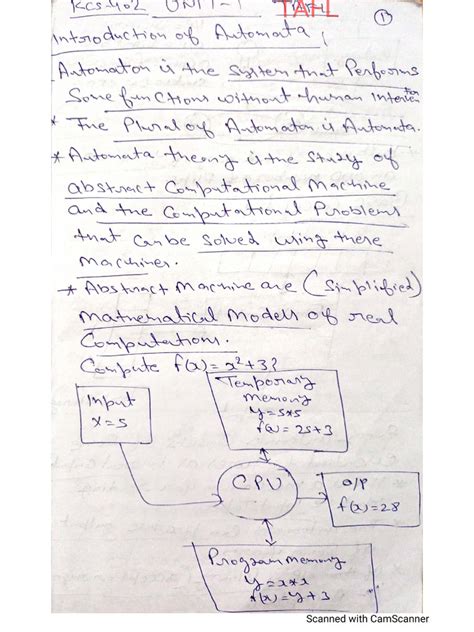 KCS-402 UNIT-1 TAFL
1
Introduction of Automata,
Automaton is the system that Performs
Some functions without human Intervention
* The Plural of Automaton is Automata.
* Automata theory is the study of
abstract Computational Machine
and the Computational Problems
that can be solved using these
Machines.
* Abstract Machine are (Simplified)
Mathematical Models of real
Computations.
Compute f(x) = x²+3?
Input
x=5
Temporary
memory
y=5*5
f(x) = 25+3
CPU
O/P
f(x)=28
Program memory
y=x*x
f(x)=y+3
Scanned with CamScanner